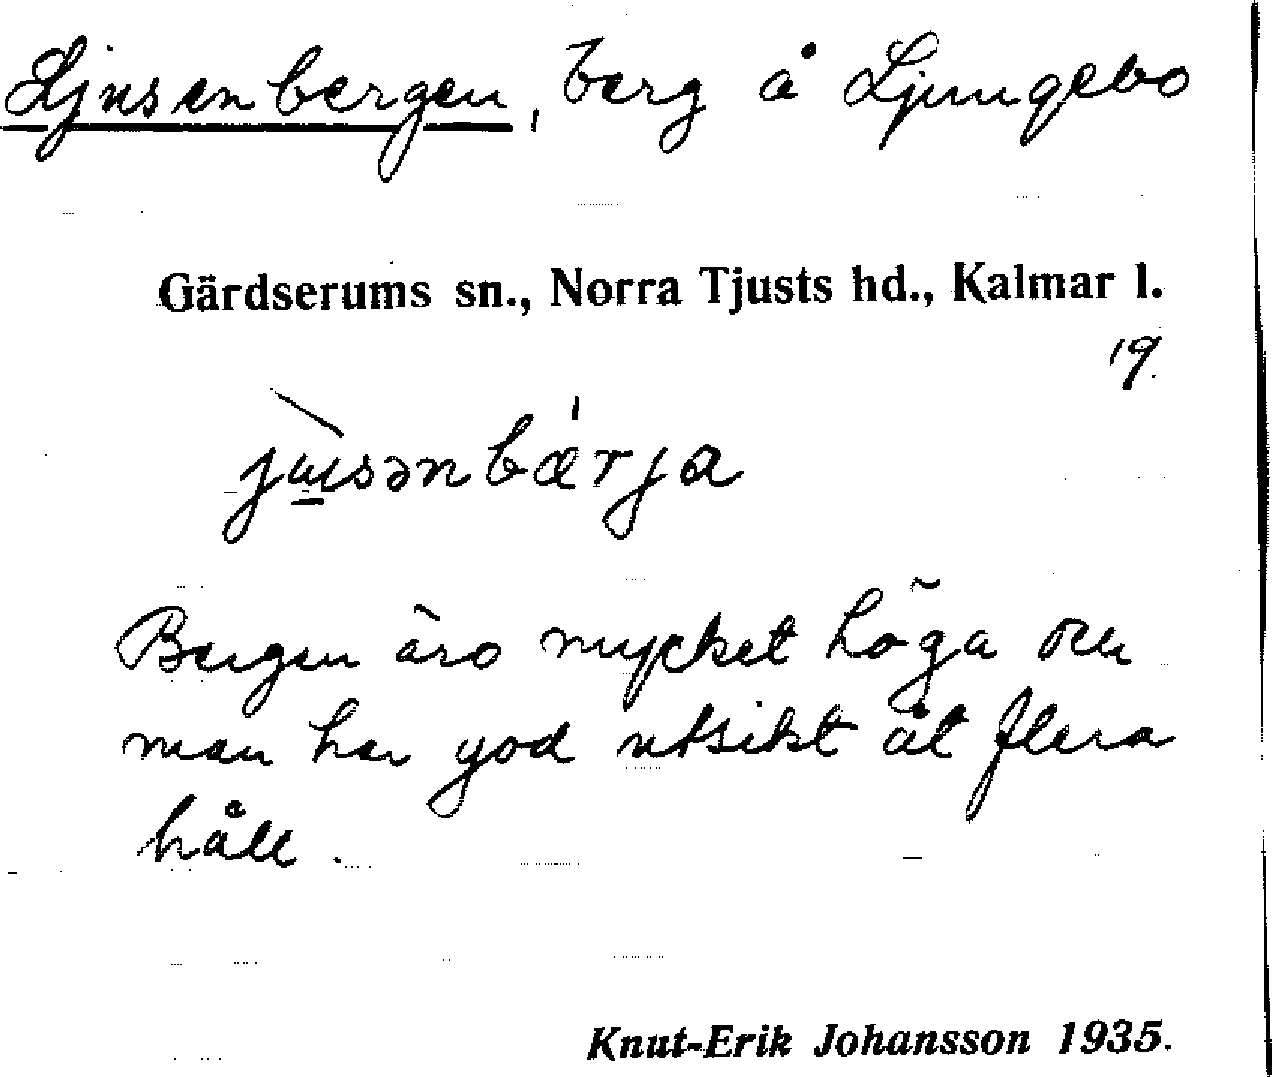 Ljusenbergen, berg å Ljungebo
Gärdserums sn., Norra Tjusts hd., Kalmar l.
19
jùsənbǽrja
Bergen äro mycket höga och
man har god utsikt åt flera
håll.
Knut-Erik Johansson 1935.